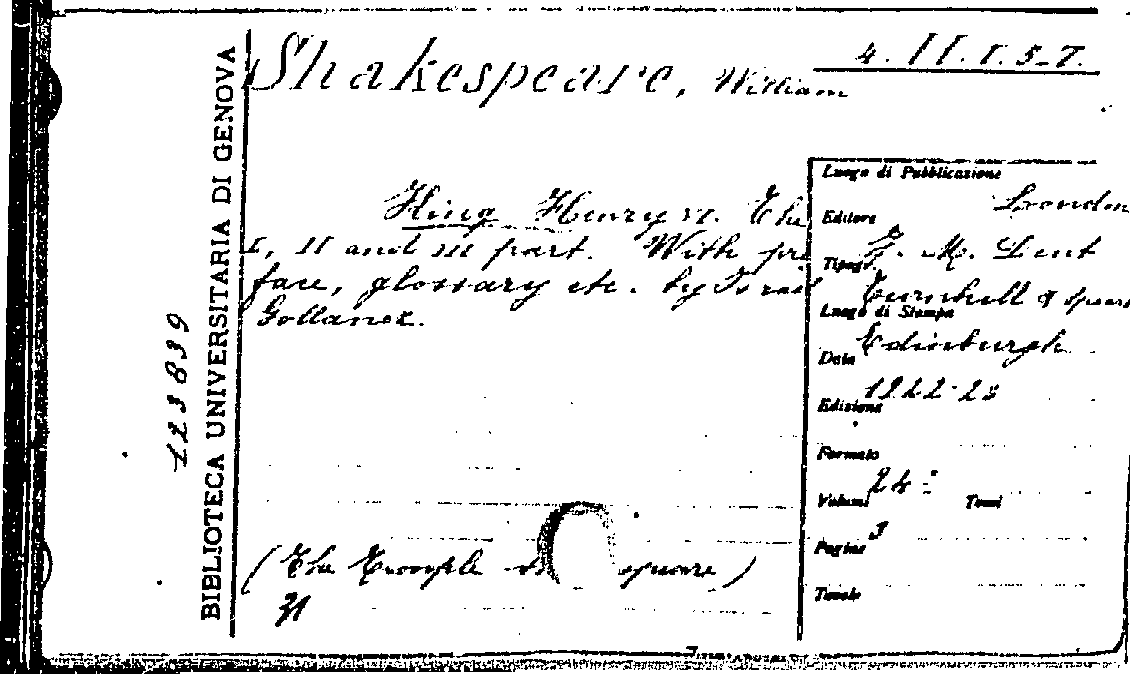 4. II. I. 5-7.
Shakespeare, William
BIBLIOTECA UNIVERSITARIA DI GENOVA
123839
King Henry VI. The
I, II and III part. With pre
face, glossary etc. by Israel
Gollancz.
(The Temple
Luogo di Pubblicazione
London
Editore
J. M. Dent
Tipogr.
Turnbull & Spears
Luogo di Stampa
Edinburgh
Data
1922-23
Edizione
Formato
24°
Volumi
3
Tomi
Pagine
Tavole